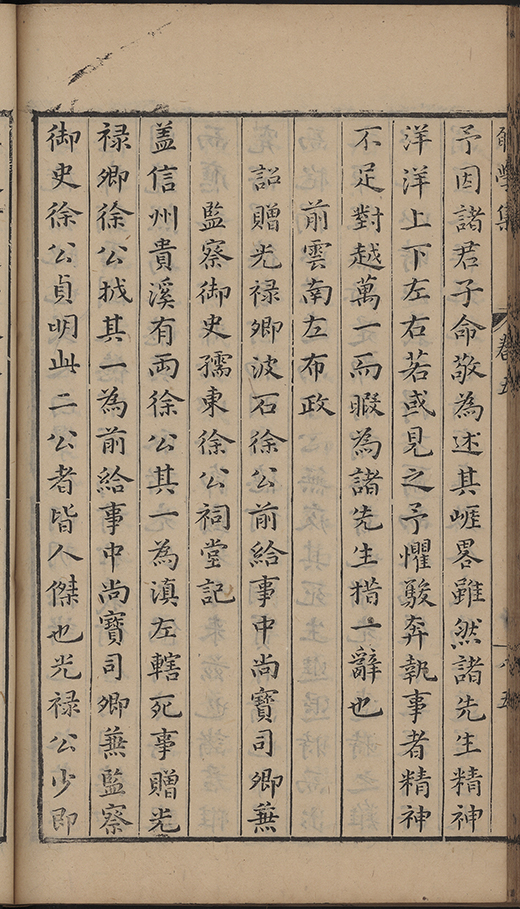 學集 卷五
予因諸君子命敬為述其崕畧雖然諸先生精神
洋洋上下左右若或見之予懼駿奔執事者精神
不足對越萬一而暇為諸先生措一辭也
前雲南左布政
詔贈光祿卿波石徐公前給事中尚寶司卿蕪
監察御史孺東徐公祠堂記
盖信州貴溪有兩徐公其一為滇左轄死事贈光
祿卿徐公樾其一為前給事中尚寶司卿蕪監察
御史徐公貞明此二公者皆人傑也光祿公少即